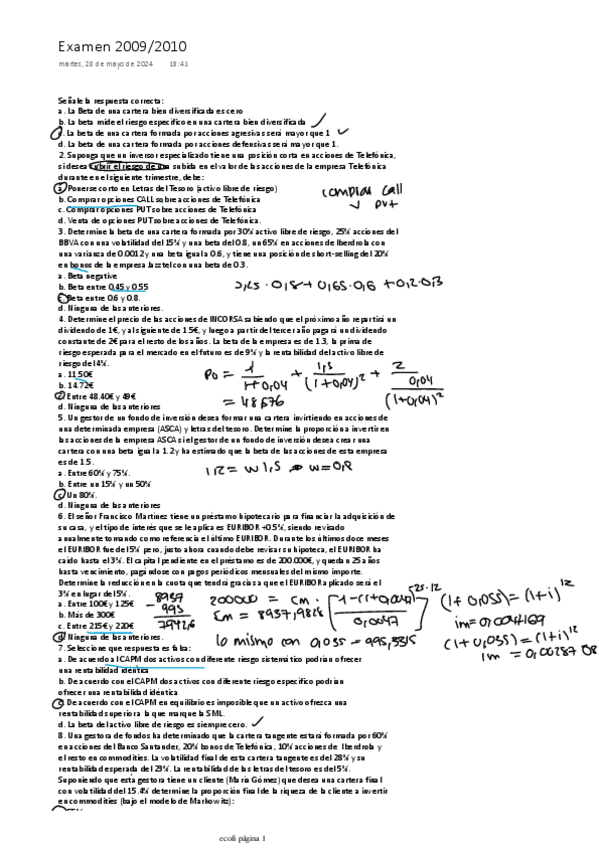 Examen 2009/2010
martes, 28 de mayo de 2024 13:41
Señale la respuesta correcta:
a. La Beta de una cartera bien diversificada es cero
b. La beta mide el riesgo especifico en una cartera bien diversificada
c. La beta de una cartera formada por acciones agresivas será mayor que 1
d. La beta de una cartera formada por acciones defensivas será mayor que 1.
2. Suponga que un inversor especializado tiene una posición corta en acciones de Telefónica,
si desea cubrir el riesgo de una subida en el valor de las acciones de la empresa Telefónica
durante en el siguiente trimestre, debe:
a. Ponerse corto en Letras del Tesoro (activo libre de riesgo)
b. Comprar opciones CALL sobre acciones de Telefónica
c. Comprar opciones PUT sobre acciones de Telefónica
d. Venta de opciones PUT sobre acciones de Telefónica.
comprar call
put
3. Determine la beta de una cartera formada por 30% activo libre de riesgo, 25% acciones del
BBVA con una volatilidad del 15% y una beta del 0.8, un 65% en acciones de Iberdrola con
una varianza de 0.0012 y una beta igual a 0.6, y tiene una posición de short-selling del 20%
en bonos de la empresa Jazztel con una beta de 0.3.
a. Beta negative
b. Beta entre 0.45 y 0.55
c. Beta entre 0.6 y 0.8.
d. Ninguna de las anteriores.
0,25 · 0,8 + 0,65 · 0,6 + 0,2 · 0,3
4. Determine el precio de las acciones de INCORSA sabiendo que el próximo año repartirá un
dividendo de 1€, y al siguiente de 1.5€, y luego a partir del tercer año pagará un dividendo
constante de 2€ para el resto de los años. La beta de la empresa es de 1.3, la prima de
riesgo esperada para el mercado en el futuro es de 9% y la rentabilidad del activo libre de
riesgo del 4%.
a. 11.50€
b. 14.72€
c. Entre 48.40€ y 49€
d. Ninguna de las anteriores
Po = 1 / 1+0,04 + 1,5 / (1+0,04)² + 2 / 0,04 / (1+0,04)²
= 48,676
5. Un gestor de un fondo de inversión desea formar una cartera invirtiendo en acciones de
una determinada empresa (ASCA) y letras del tesoro. Determine la proporción a invertir en
las acciones de la empresa ASCA si el gestor de un fondo de inversión desea crear una
cartera con una beta igual a 1.2 y ha estimado que la beta de las acciones de esta empresa
es de 1.5.
a. Entre 60% y 75%.
b. Entre un 15% y un 50%
c. Un 80%.
d. Ninguna de las anteriores
1,2 = w 1,5 → w=0,8
6. El señor Francisco Martinez tiene un préstamo hipotecario para financiar la adquisición de
su casa, y el tipo de interés que se le aplica es EURIBOR +0.5%, siendo revisado
anualmente tomando como referencia el último EURIBOR. Durante los últimos doce meses
el EURIBOR fue del 5% pero, justo ahora cuando debe revisar su hipoteca, el EURIBOR ha
caído hasta el 3%. El capital pendiente en el préstamo es de 200.000€, y quedan 25 años
hasta vencimiento, pagándose con pagos periódicos mensuales del mismo importe.
Determine la reducción en la cuota que tendrá gracias a que el EURIBOR aplicado será el
3% en lugar del 5%.
a. Entre 100€ y 125€
b. Más de 300€
c. Entre 215€ y 220€
d. Ninguna de las anteriores.
8937
- 995
7942,6
200000 = Cm · [1-(1+0,0047)-25·12 / 0,0047]
Cm = 8937,9828
lo mismo con 0,035 → 995,3315
(1+0,055)=(1+i)12
im=0,0044169
(1+0,035)=(1+i)12
im = 0,00287 08
7. Seleccione que respuesta es falsa:
a. De acuerdo al CAPM dos activos con diferente riesgo sistemático podrían ofrecer
una rentabilidad idéntica
b. De acuerdo con el CAPM dos activos con diferente riesgo especifico podrían
ofrecer una rentabilidad idéntica
c. De acuerdo con el CAPM en equilibrio es imposible que un activo ofrezca una
rentabilidad superior a la que marque la SML.
d. La beta del activo libre de riesgo es siempre cero.
8. Una gestora de fondos ha determinado que la cartera tangente estará formada por 60%
en acciones del Banco Santander, 20% bonos de Telefónica, 10% acciones de Iberdrola y
el resto en commodities. La volatilidad final de esta cartera tangente es del 28% y su
rentabilidad esperada del 23%. La rentabilidad de las letras del tesoro es del 5%.
Suponiendo que esta gestora tiene un cliente (María Gómez) que desea una cartera final
con volatilidad del 15.4% determine la proporción final de la riqueza de la cliente a invertir
en commodities (bajo el modelo de Markowitz):
ecofi página 1